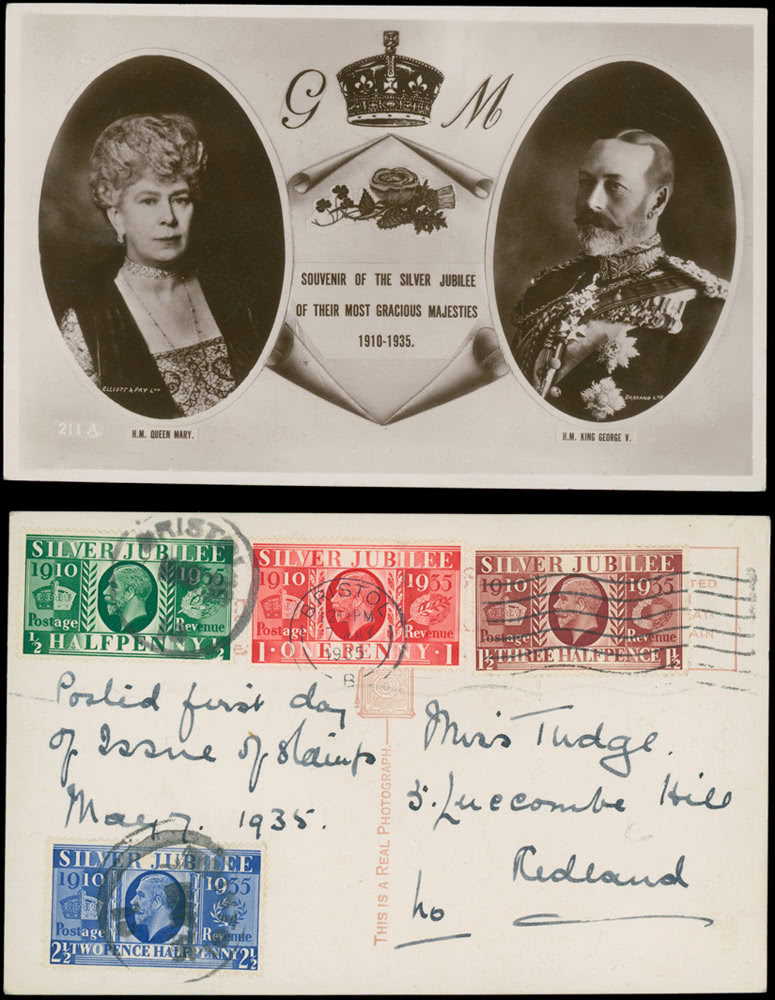 G M
SOUVENIR OF THE SILVER JUBILEE
OF THEIR MOST GRACIOUS MAJESTIES
1910-1935.
ELLIOTT & FRY LTD
BASSANO LTD
211 A.
H.M. QUEEN MARY.
H.M. KING GEORGE V.
BRISTOL
SILVER JUBILEE
1910 1935
Postage Revenue
½ HALFPENNY ½
SILVER JUBILEE
1910 1935
Postage Revenue
1 · ONE PENNY · 1
BRISTOL
PM
1935
B
SILVER JUBILEE
1910 1935
Postage Revenue
1½ THREE HALFPENCE 1½
Posted first day
of Issue of Stamps
May 7. 1935.
Miss Tudge.
5. Luccombe Hill
Redland
THIS IS A REAL PHOTOGRAPH.
SILVER JUBILEE
1910 1935
Postage Revenue
2½ TWO PENCE HALFPENNY 2½